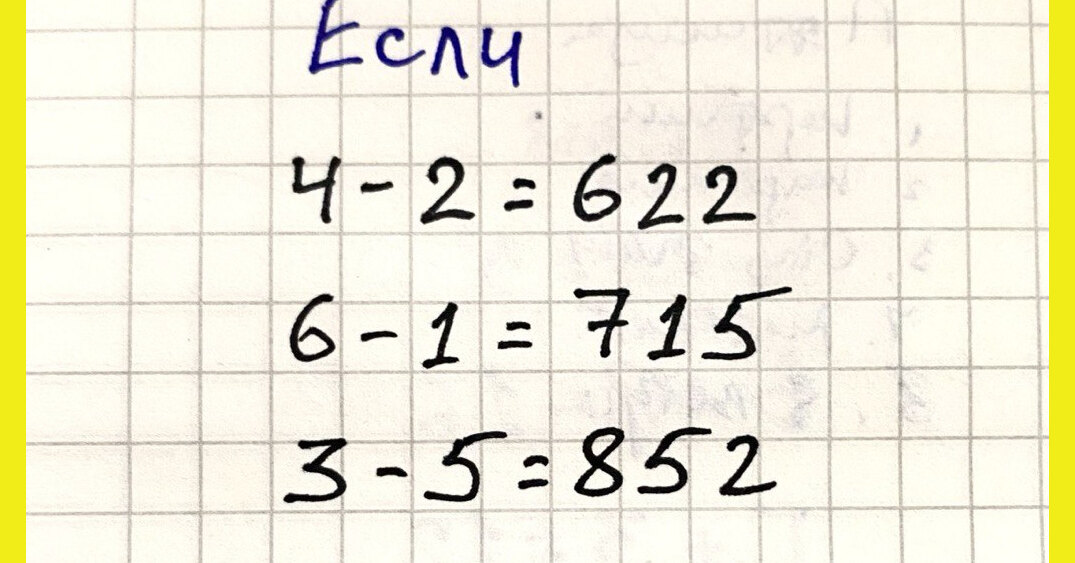 Если
4 - 2 = 622
6 - 1 = 715
3 - 5 = 852